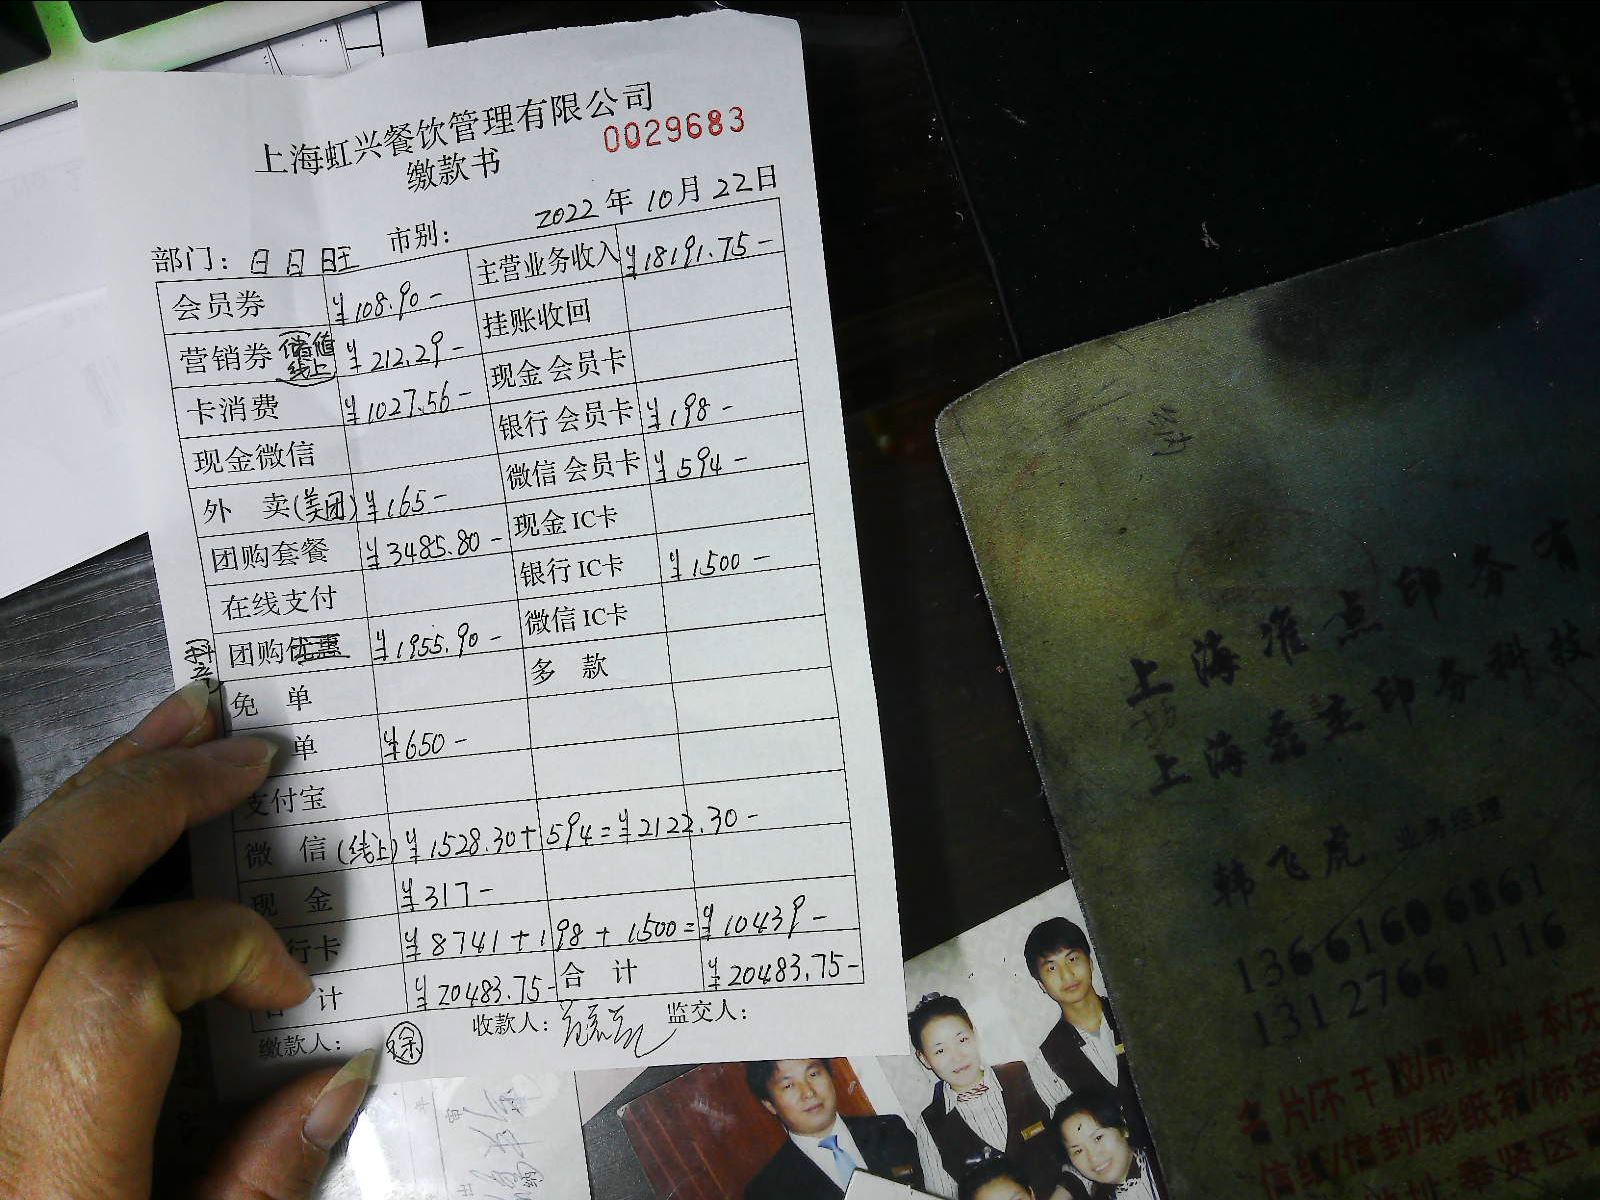 上海虹兴餐饮管理有限公司
0029683
缴款书
2022年10月22日
部门：日日旺 市别：
会员券 ¥108.90- 主营业务收入 ¥18191.75-
营销券 (储值线上) ¥212.29- 挂账收回
卡消费 ¥1027.56- 现金会员卡
现金微信 银行会员卡 ¥198-
外卖(美团) ¥165- 微信会员卡 ¥594-
团购套餐 ¥3485.80- 现金IC卡
在线支付 银行IC卡 ¥1500-
团购优惠 ¥1955.90- 微信IC卡
免单 多款
单 ¥650-
支付宝
微信(线上) ¥1528.30+594=¥2122.30-
现金 ¥317-
行卡 ¥8741+198+1500=¥10439-
计 ¥20483.75- 合计 ¥20483.75-
缴款人：徐 收款人： 监交人：
上海准点印务有
上海磊立印务科技
韩飞虎 业务经理
13661606861
13127661116